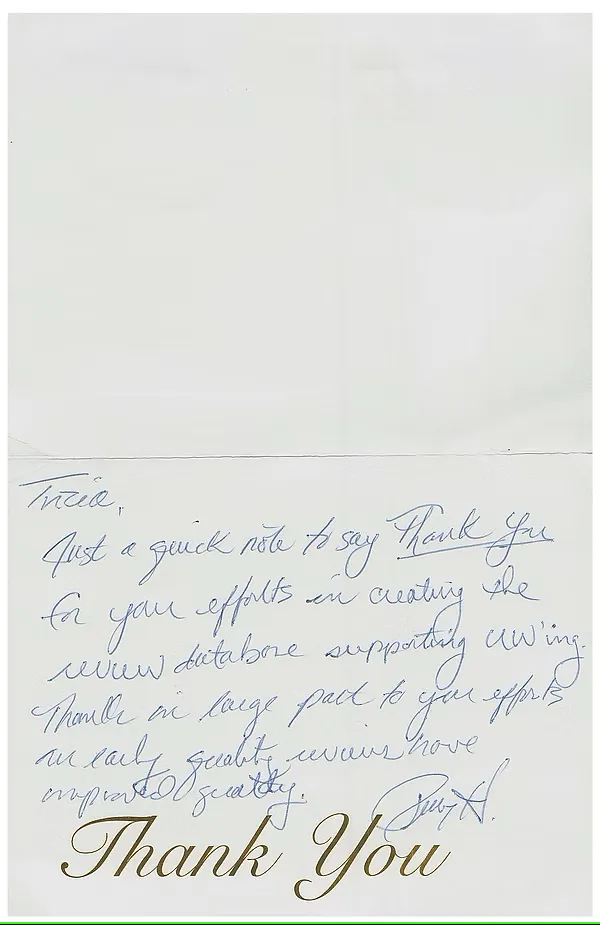 Tricia,
Just a quick note to say Thank You
for your efforts in creating the
review database supporting UW'ing.
Thanks in large part to your efforts
our early quality reviews have
improved quality.
H.
Thank You